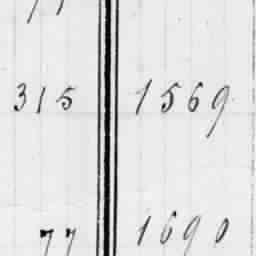 315 1569
77 1690